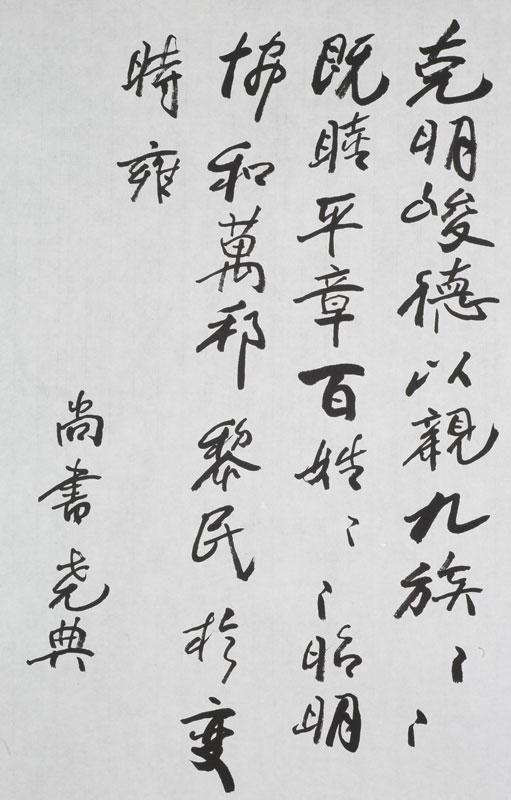 克明峻德以親九族〻〻
既睦平章百姓〻〻昭明
協和萬邦黎民於變
時雍
尚書堯典